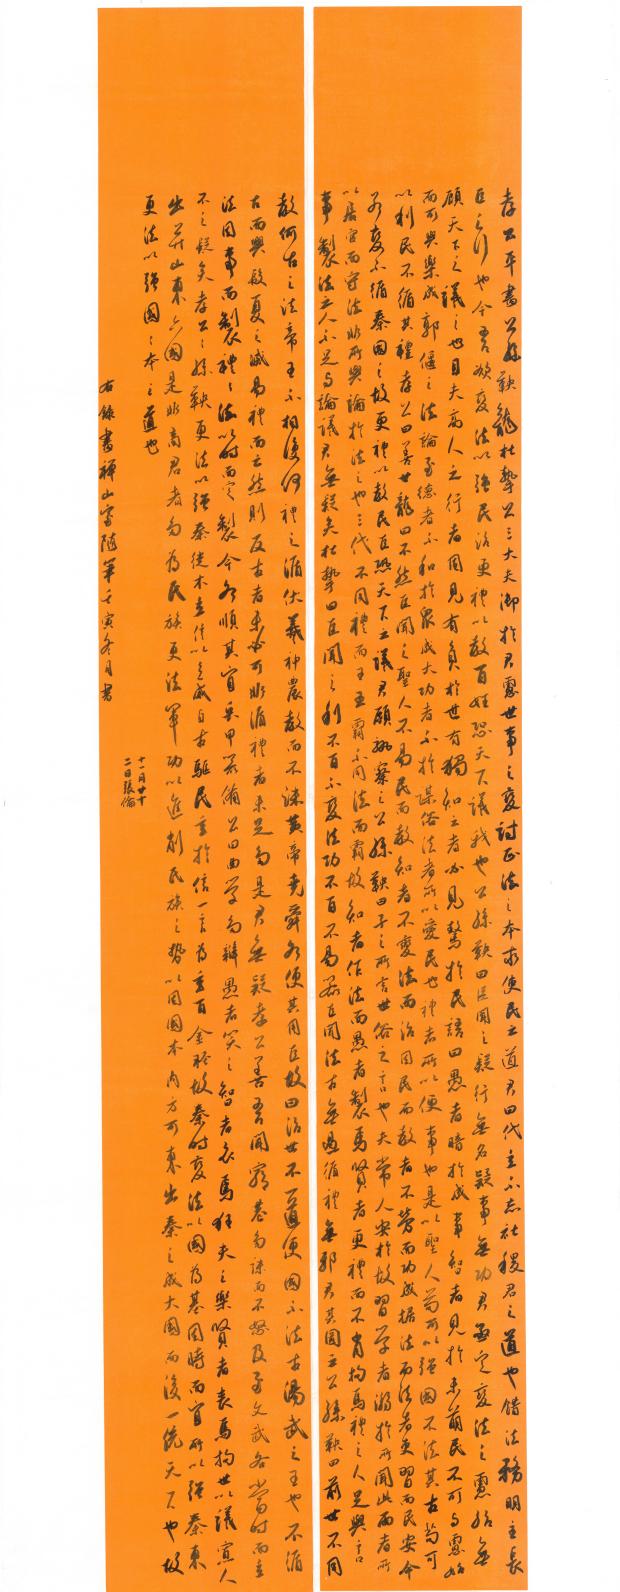 孝公平書公孫鞅龍杜摯公三大夫御於君慮世事之變討正法之本求使民之道君曰代立不忘社稷君之道也錯法務明主長
臣之行也今吾欲變法以強民治更禮以教百姓恐天下議我也公孫鞅曰臣聞之疑行無名疑事無功君亟定變法之慮殆無
顧天下之議之也且夫高人之行者固見有負於世有獨知之者必見驁於民語曰愚者暗於成事智者見於未萌民不可与慮始
而可與樂成郭偃之法論至德者不和於眾成大功者不於謀俗法者所以愛民也禮者所以便事也是以聖人苟可以強國不法其古苟可
以利民不循其禮孝公曰善世龍曰不然臣聞之聖人不易民而教知者不變法而治因民而教者不勞而功成據法而法者吏習而民安今
若變不循秦國之故更禮以教民臣恐天下之議君願孰察之公孫鞅曰子之所言世俗之言也夫常人安於故習學者溺於所聞此兩者所
以居官而守法非所與論於法之也三代不同禮而王五霸不同法而霸故知者作法而愚者製焉賢者更禮而不肖拘焉禮之人足與言
事製法之人不足与論議君無疑矣杜摯曰臣聞之利不百不變法功不百不易器臣聞法古無過循禮無邪君其圖之公孫鞅曰前世不同
教何古之法帝王不相復何禮之循伏羲神農教而不誅黃帝堯舜各便其用臣故曰治世不一道便國不法古湯武之王也不循
古而興殷夏之滅易禮而亡然則反古者未必可非循禮者未足多是君無疑孝公善吾聞窮巷多誅而不怒及至文武各當時而立
法因事而製禮禮法以時而定製令各順其宜兵甲器備公曰曲學多辯愚者笑之智者哀焉狂夫之樂賢者喪焉拘世以議寡人
不之疑矣孝公公孫鞅更法以強秦徙木立信以立威自古驅民在於信一言為重百金輕故秦時變法以國為基因時而宜所以強秦東
出並山東六國是非商君者多為民族更法軍功以進削民族之勢以固國本內方可東出秦之成大國而後一統天下也故
更法以強國之本之道也
右錄書禪山富隨筆壬寅冬月書
十一月廿十
二日張倫